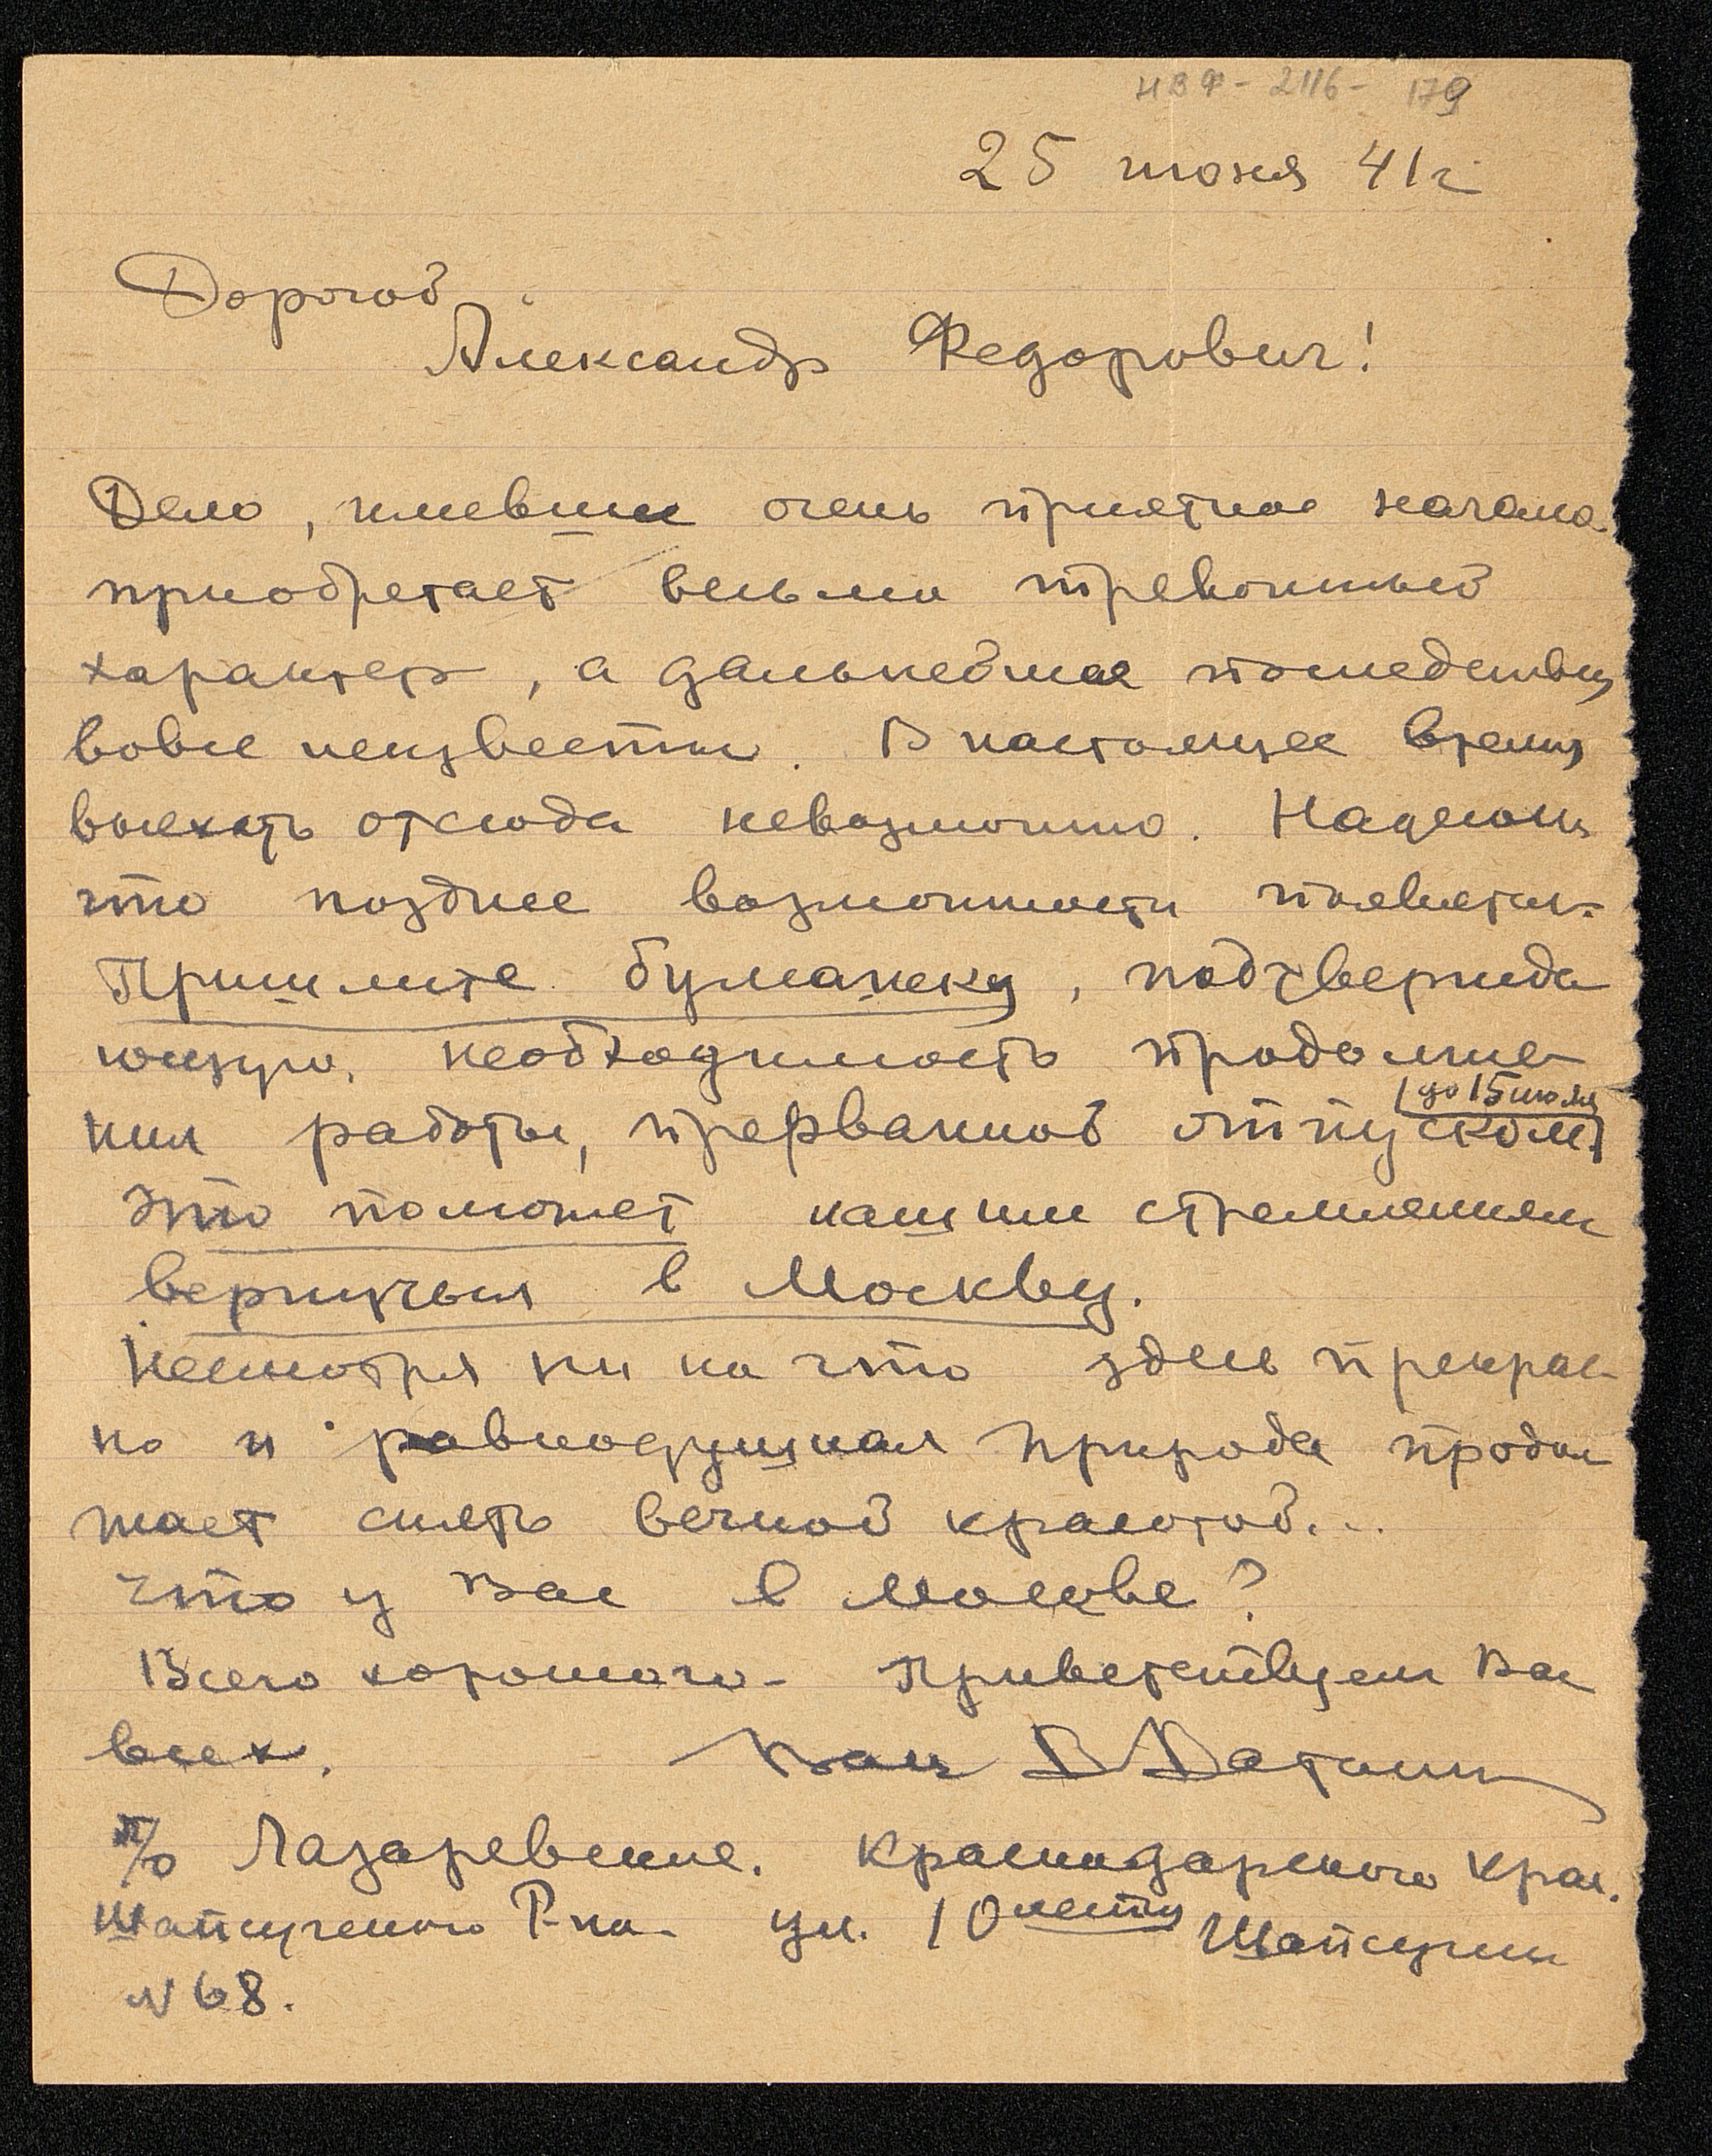 НВФ - 2116 - 179
25 июня 41 г
Дорогой
Александр Федорович!
Дело, имевши очень приятное начало
приобретает весьма тревожный
характер, а дальнейшее
вовсе неизвестны. В настоящее время
выехать отсюда невозможно. Надеюсь
что позднее возможности появятся.
Пришлите бумажку, подтвержда
ющую, необходимость продолже-
(до 15 июля
ния работы, прерванной отпуском)
это поможет нашим стремлениям
вернуться в Москву.
Несмотря ни на что здесь прекрас-
но и равнодушная природа продол
жает сиять вечной красотой...
Что у Вас в Москве?
Всего хорошего - Приветствуем Вас
всех. Ваш В Ватагин
п/о Лазаревское. Краснодарского края.
Шапсугского Р-на. ул. 10 летия Шапсугии
№ 68.